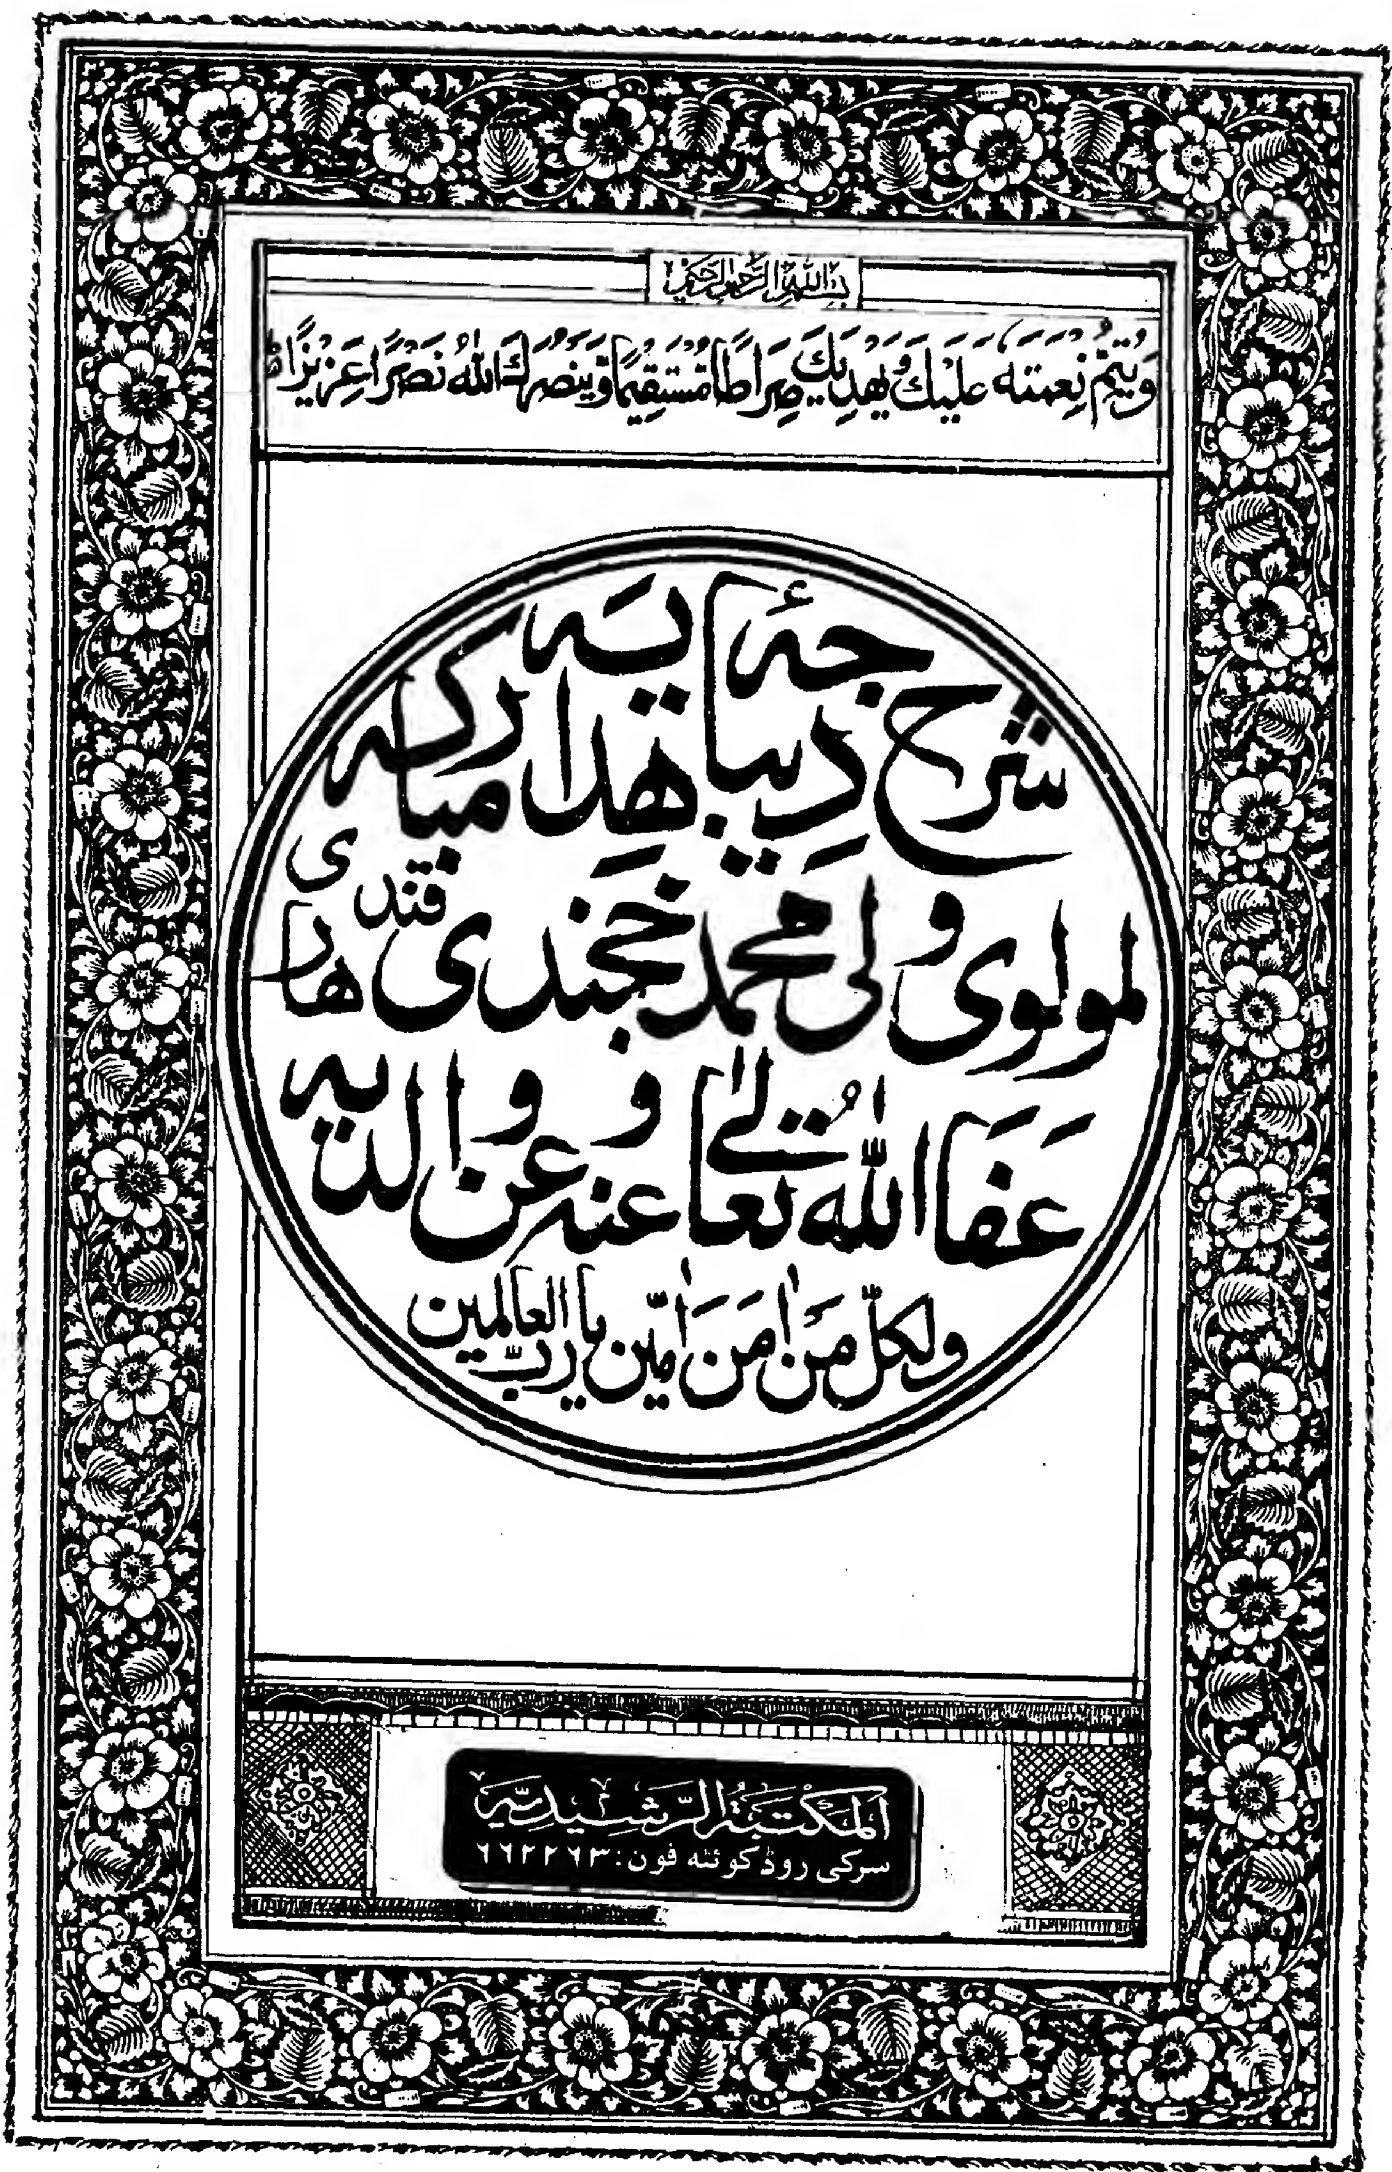 بسم الله الرحمن الرحيم
وَيُتِمَّ نِعْمَتَهُ عَلَيْكَ وَيَهْدِيَكَ صِرَاطًا مُّسْتَقِيمًا وَّيَنْصُرَكَ اللهُ نَصْرًا عَزِيزًا
شرح دِيباجۂ هِدايَه مباركه
لمولوی ولی محمد خجندی قندهاری
عَفَا اللهُ تعالیٰ عنه وعن والديه
ولكلّ مَنْ اٰمَنَ اٰمّين يا ربّ العالمين
اَلمكْتَبَةُ الرّشيديّه
سرکی روڈ کوئٹه فون: ٦٦٢٢٦٣